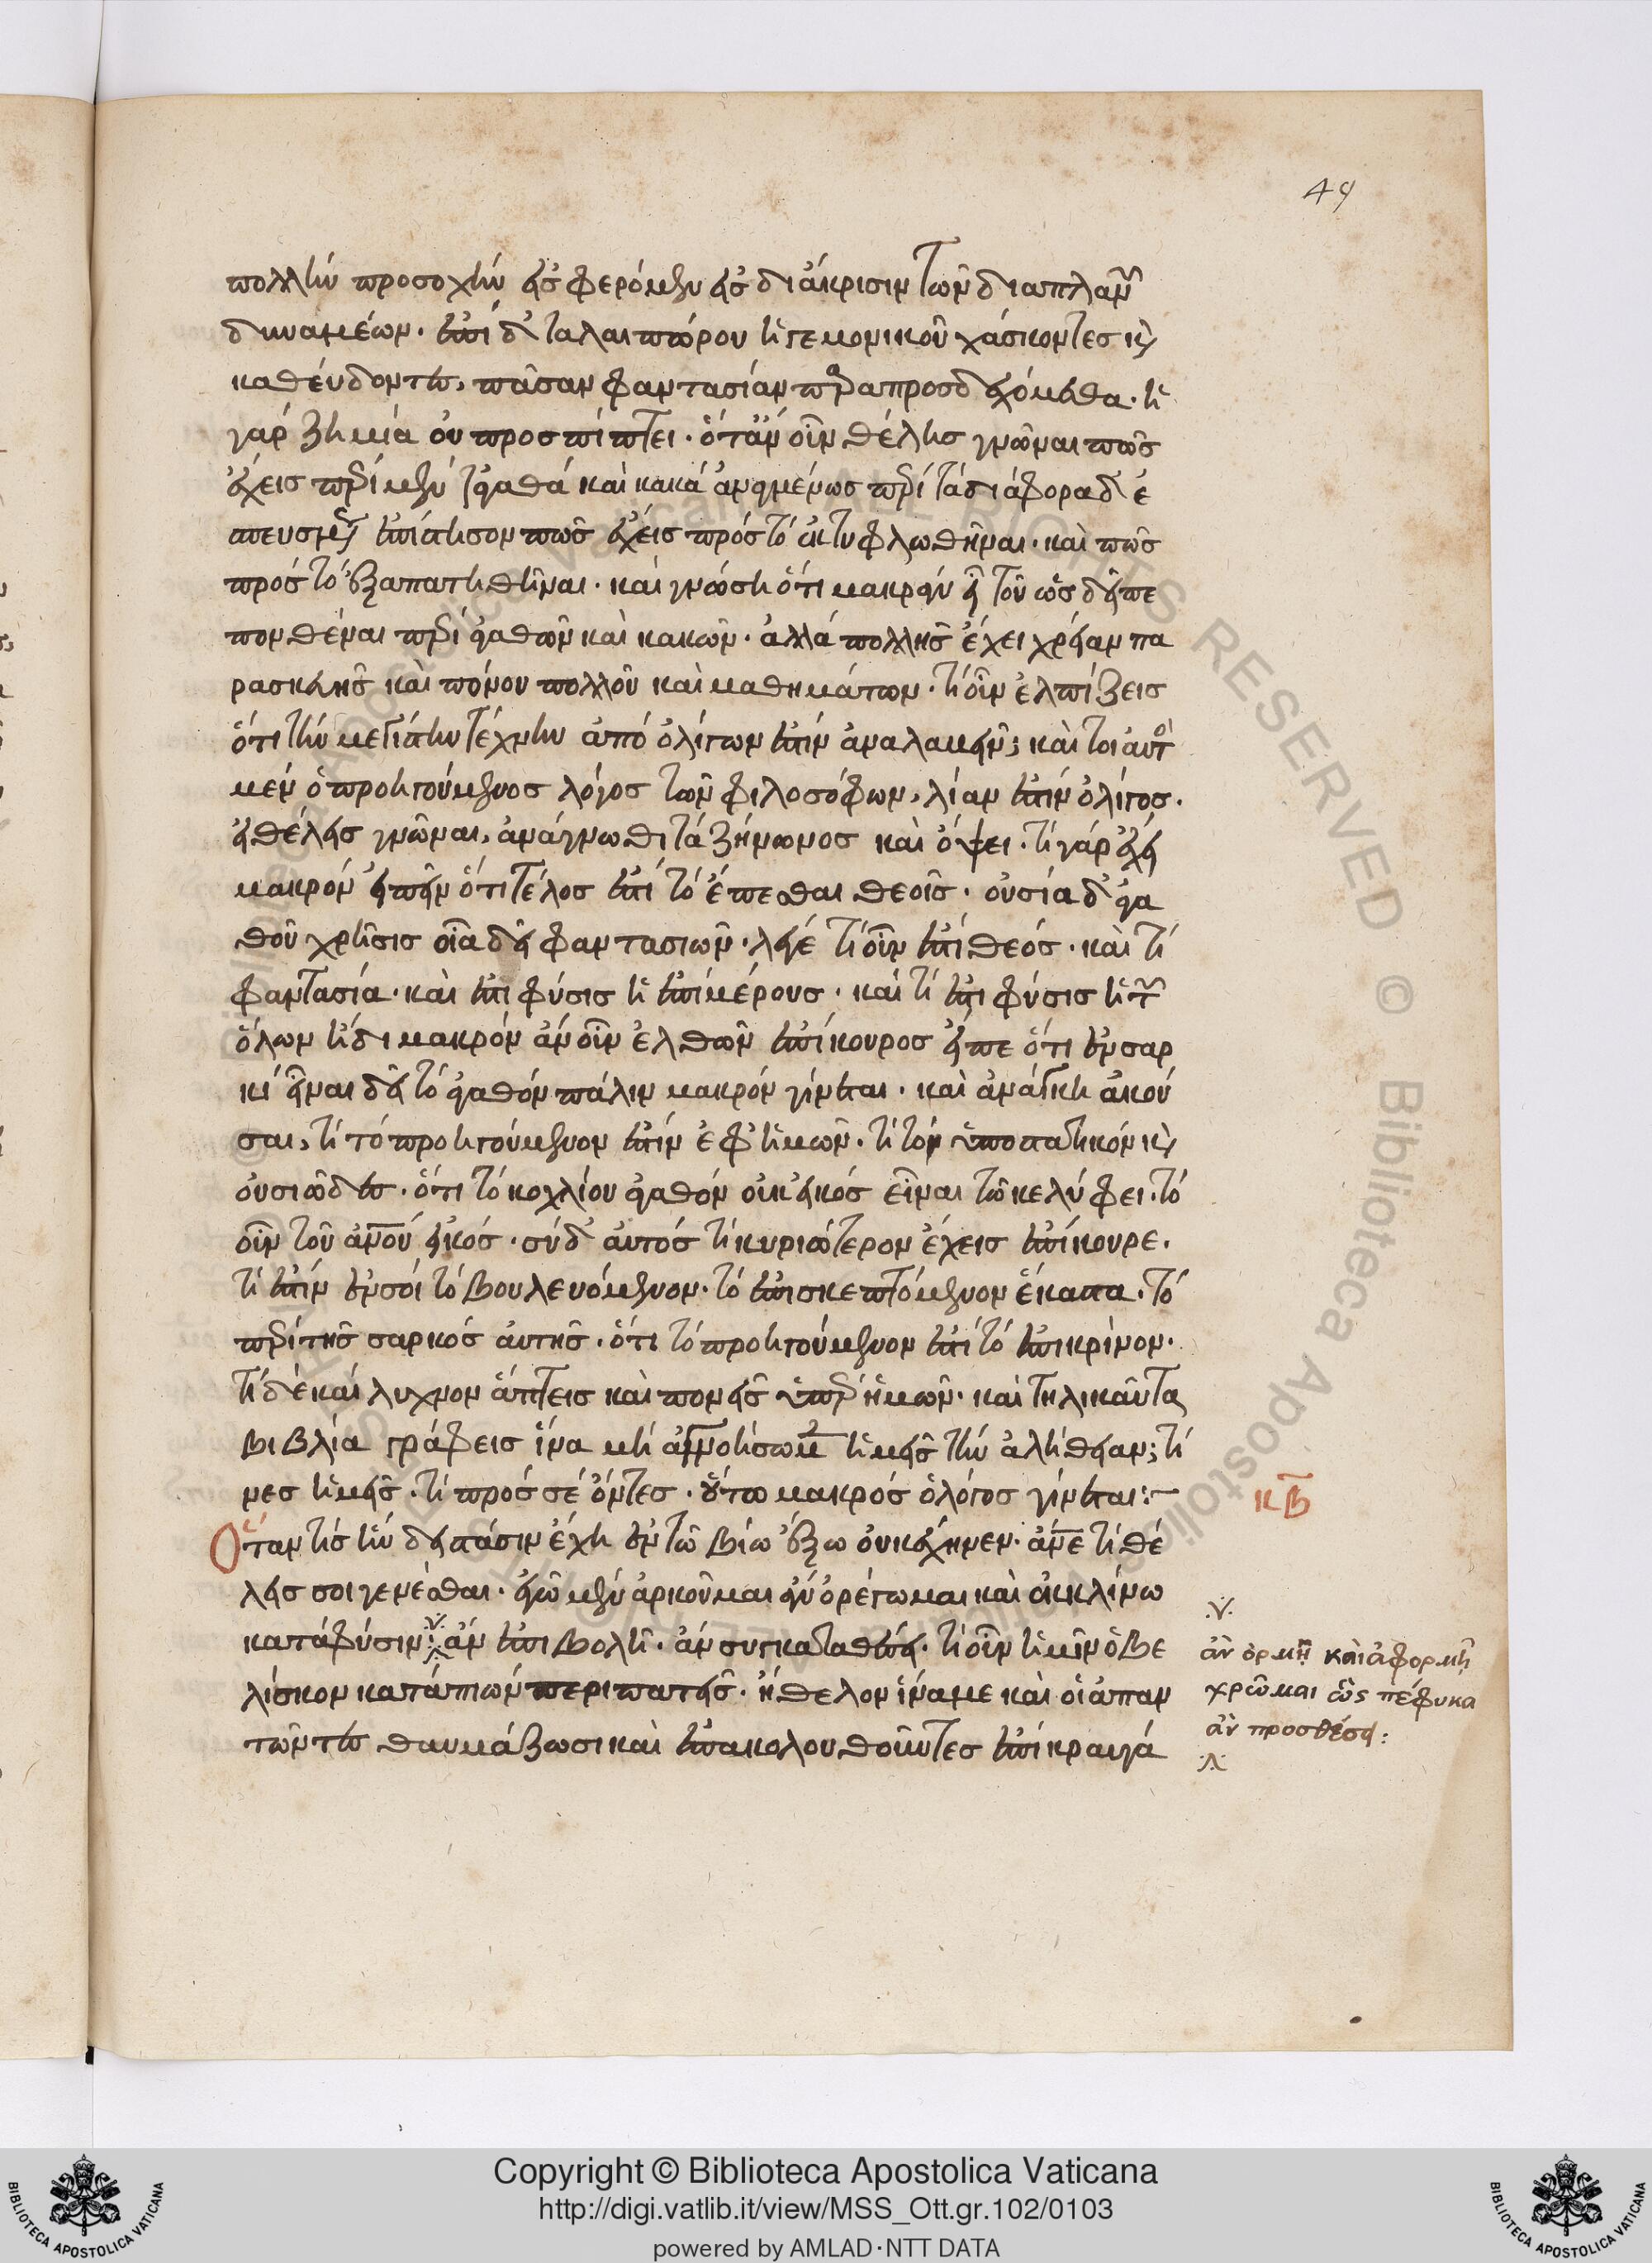 49
πολλὴν προσοχὴν εἰσφέρομεν εἰς διάκρισιν τῶν διαπλαν
δυναμέων. ἐπὶ δὲ ταλαιπώρου ἡγεμονικοῦ χάσκοντες καὶ
καθεύδοντες, πᾶσαν φαντασίαν παραπροσδεχόμεθα. ἡ
γὰρ ζημία οὐ προσπίπτει. ὅταν οὖν θέλῃς γνῶναι πῶς
ἔχεις περὶ μὲν τἀγαθὰ καὶ κακὰ ἀνειμένως περὶ τὰ διάφορα δ' ἐ
σπευσμένως ἐπίστησον πῶς ἔχεις πρὸς τὸ ἐκτυφλωθῆναι. καὶ πῶς
πρὸς τὸ ἐξαπατηθῆναι. καὶ γνώσῃ ὅτι μακρὰν εἶ τοῦ ὡς δεῖ πε
πονθέναι περὶ ἀγαθῶν καὶ κακῶν. ἀλλὰ πολλῆς ἔχει χρείαν πα
ρασκευῆς καὶ πόνου πολλοῦ καὶ μαθημάτων. τί οὖν ἐλπίζεις
ὅτι τὴν μεγίστην τέχνην ἀπὸ ὀλίγων ἐστὶν ἀναλαβεῖν; καὶ τοι αὐτὸς
μὲν ὁ προηγούμενος λόγος τῶν φιλοσόφων, λίαν ἐστὶν ὀλίγος.
εἰ θέλεις γνῶναι, ἀνάγνωθι τὰ Ζήνωνος καὶ ὄψει. τί γὰρ ἔχει
μακρὸν εἰπεῖν ὅτι τέλος ἐστὶ τὸ ἕπεσθαι θεοῖς. οὐσία δ' ἀγα
θοῦ χρῆσις οἵα δεῖ φαντασιῶν. λέγε τί οὖν ἐστὶ θεός. καὶ τί
φαντασία. καὶ ἐστι φύσις ἡ ἐπὶ μέρους. καὶ τί ἐστι φύσις ἡ τῶν
ὅλων ἤδη μακρόν ἂν οὖν ἐλθὼν ἐπίκουρος εἴπε ὅτι ἐν σαρ
κὶ εἶναι δεῖ τὸ ἀγαθὸν πάλιν μακρὸν γίνεται. καὶ ἀνάγκη ἀκοῦ
σαι, τί τὸ προηγούμενον ἐστὶν ἐφ' ἡμῶν. τί τὸ ὑποστατικὸν καὶ
οὐσιῶδες. ὅτι τὸ κοχλίου ἀγαθὸν οὐκ εἰκός εἶναι τῶ κελύφει. τὸ
οὖν τοῦ ἀνου εἰκός. σὺ δ' αὐτὸς τί κυριώτερον ἔχεις ἐπίκουρε.
τί ἐστὶν ἐν σοὶ τὸ βουλευόμενον. τὸ ἐπισκεπτόμενον ἕκαστα. τὸ
περὶ τῆς σαρκὸς αὐτῆς. ὅτι τὸ προηγούμενον ἐστὶ τὸ ἐπικρῖνον.
τί δὲ καὶ λύχνον ἅπτεις καὶ πονεῖς ὑπὲρ ἡμῶν. καὶ τηλικαῦτα
βιβλία γράφεις ἵνα μὴ ἀγνοήσωμεν ἡμεῖς τὴν ἀλήθειαν; τί
νες ἡμεῖς. τί πρὸς σὲ ὄντες. οὕτω μακρὸς ὁ λόγος γίνεται:
κβ
Ὅταν τὶς ἣν δεῖ στάσιν ἔχῃ ἐν τῶ βίω ἔξω οὐ κέχηνεν. ἄνε τί θέ
λεις σοι γενέσθαι. ἐγὼ μὲν ἀρκοῦμαι ἐὰν ὀρέγωμαι καὶ ἐκκλίνω
κατὰ φύσιν ἂν ἐπιβολῇ. ἂν συγκαταθέσει. τί οὖν ἡμῖν ὀβε
λίσκον καταπιὼν περιπατεῖς. ἤθελον ἵνα με καὶ οἱ ἀπαν
τῶντες θαυμάζωσι καὶ ἐπακολουθοῦντες ἐπικραυγά
ἂν ὁρμῇ καὶ ἀφορμῇ
χρῶμαι ὡς πέφυκα
ἂν προσθέσει:
Copyright © Biblioteca Apostolica Vaticana
http://digi.vatlib.it/view/MSS_Ott.gr.102/0103
powered by AMLAD·NTT DATA
BIBLIOTECA APOSTOLICA VATICANA
BIBLIOTECA APOSTOLICA VATICANA